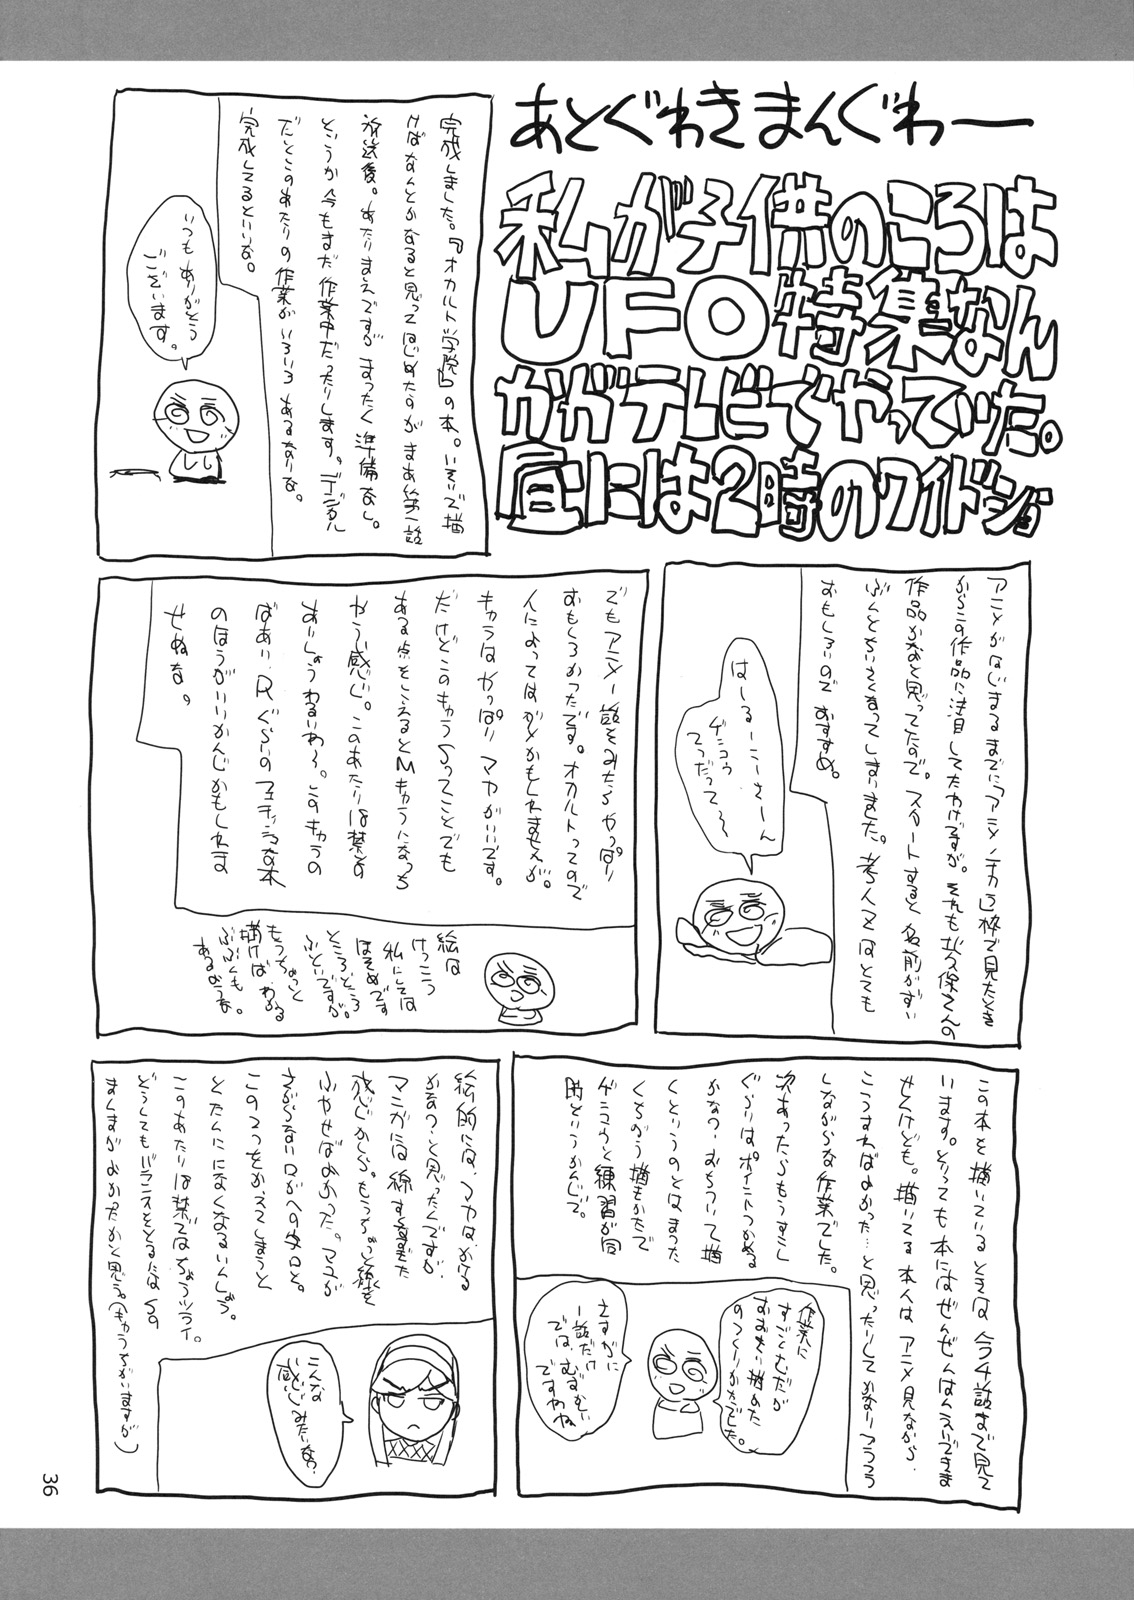 あとぐわきまんぐわー
私が子供のころは
UFO特集なん
かがテレビでやっていた。
昼には2時のワイドショ
完成しました。『オカルト学院』の本。いそいで描
けばなんとかなると思ってはじめたのがまあ第一話
放送後。あたりまえですがまったく準備なし。
というか今もまだ作業中だったりします。デジタル
だとこのあたりの作業がいろいろあるなりな。
完成してるといいな。
いつもありがとう
ございます。
アニメがはじまるまでに「アニメノチカラ」枠で見たとき
からこの作品に注目してたわけですが。それも
作品かなあと思ってたので。スタートすると名前がずい
ぶんとちいさくなってしまいました。
おもしろいのでおすすめ。
はーるーこーさーん
ゲンコウ
てつだって〜
でもアニメ一話をみたらやっぱり
おもしろかったです。オカルトってので
人によってはダメかもしれませんが。
キャラはやっぱりマヤがいいです。
だけどこのキャラSってことでも
ある点をこえるとMキャラになっち
ゃう感じ。このあたりは禁そ
あいしょうわるいわ〜。このキャラの
ばあい、Rぐらいのフェチッシュな本
のほうがいいかんじかもしれま
せぬな。
絵は
けっこう
私にしては
ほそめです
ところどころ
ふといですが。
もうちょっと
描けばわかる
ぶぶんも
あるような。
この本を描いているときは今4話まで見て
います。とっても本にはぜんぜんはんえいできま
せんけども。描いてる本人はアニメ見ながら、
こうすればよかった…と思ったりしてかなりフラフラ
しながらな作業でした。
次あったらもうすこし
ぐらいはポイントつかめる
かなっ。おちついて描
くというのとはまった
くちがう描きかたで
ゲンコウと練習が同
時というかんじで。
作業に
すごくむだが
おおきい描めた
のつくりかたでした。
さすがに
一話だけ
では、むずかしい
ですわね
絵的には、マヤは、かける
かなっ、と思ったんですが
マンガには線すくなすぎた
感じかしら。もうちょっと線を
ふやせばよかった。マユが
さがらない、口がへの字口と。
この2つをかえてしまうと
とたんにになくなるいんしょう。
このあたりは禁ではちょうツライ。
どうしてもバランスをとるにはSの
まんまがよかったかと思う。(もうちがいますが)
こんな
感じみたいな?
36